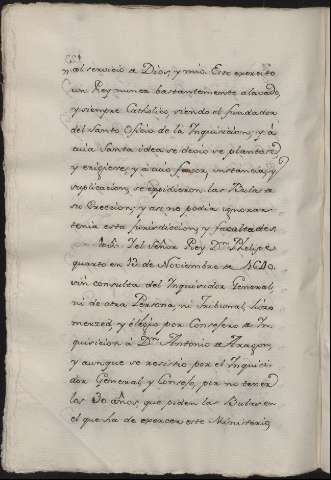 al servicio a Dios, y mio. Esto executo
un Rey nunca bastantemente alavado,
y siempre Catholico, siendo el fundador
del Santo Oficio de la Inquisicion, y á
cuia Santa idea se devio se plantase,
y erigiese, y á cuio favor, instancia, y
suplicacion, se expidieron las Bulas a
su Ereccion; y asi no podia ignorar
tenia esta jurisdiccion, y facultades
El Señor Rey Dn. Phelipe
quarto en 12 de Noviembre de 1640.
sin consulta del Inquisidor General,
ni de otra Persona, ni Tribunal, hizo
merzed, y eligio por Consejero de In
quisicion á Dn. Antonio de Aragon,
y aunque se resistio por el Inquici
dor General, y Consejo, por no tener
los 30 años, que piden las Bulas en
el que ha de exercer este Ministerio,